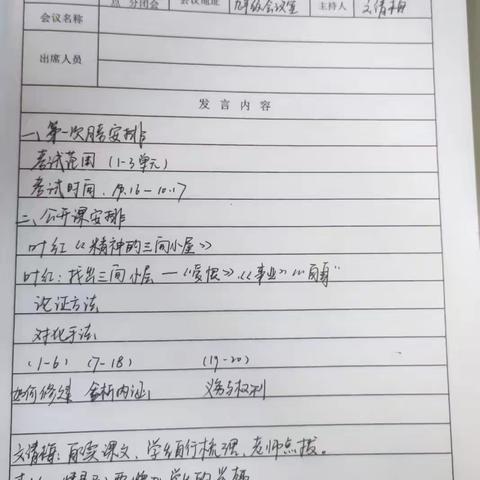 点 分团会 会议地址 九年级会议室 主持人 文倩梅
会议名称
出席人员
发 言 内 容
一、第一次月考安排
考试范围 (1-3单元)
考试时间 10.16-10.17
二、公开课安排
叶红《精神的三间小屋》
叶红:找出三间小屋 —《爱恨》《事业》"自身"
论证方法
对比手法
(1-6) (7-18) (19-20)
如何修建 义务与权利
文倩梅:配实课文,学生自行梳理,老师点拨。